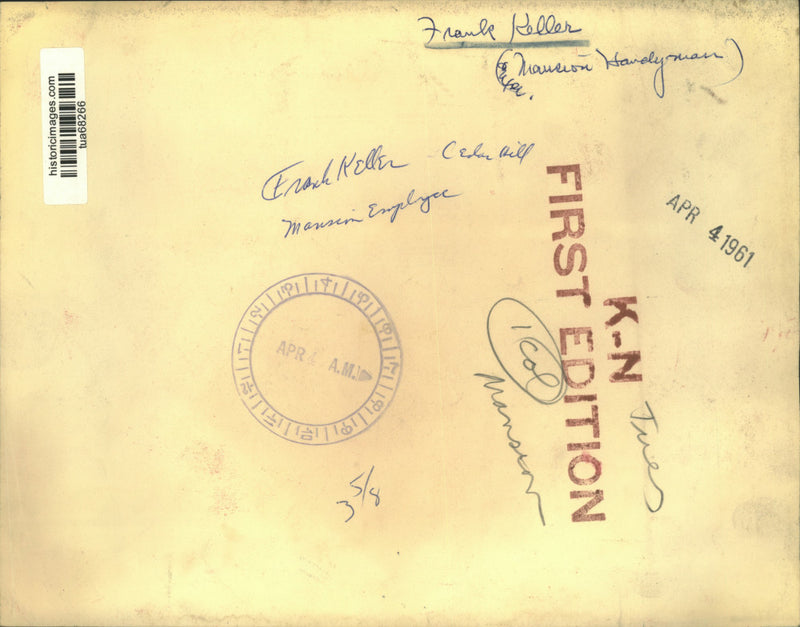 Frank Keller
(Mansion Handyman)
historicimages.com
tua68266
Frank Keller - Cedar Hill
Mansion Employee
APR 4 1961
FIRST EDITION
K-N
1 col
Mansion
Tues
APR 4 A.M.
3 5/8